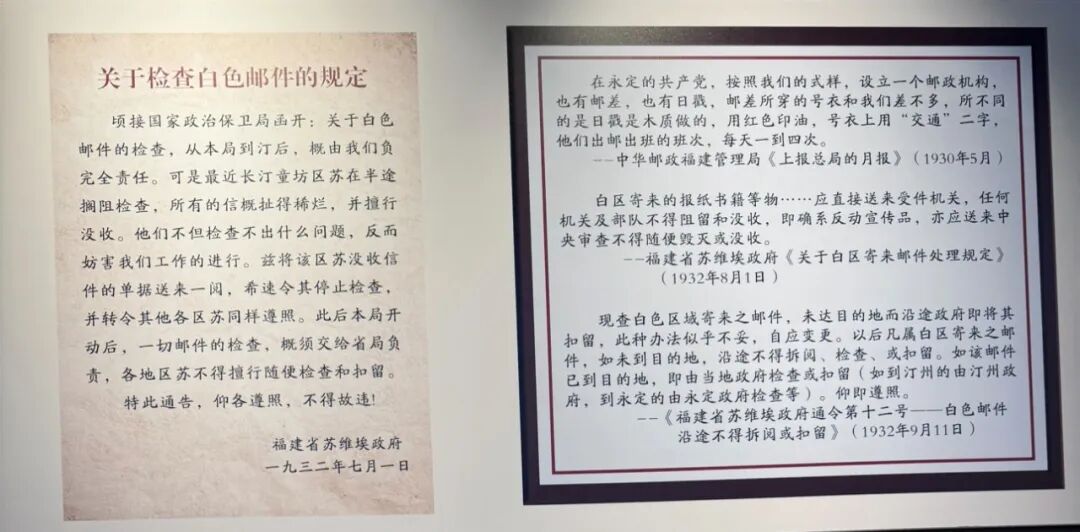 关于检查白色邮件的规定
顷接国家政治保卫局函开：关于白色
邮件的检查，从本局到汀后，概由我们负
完全责任。可是最近长汀童坊区苏在半途
搁阻检查，所有的信概扯得稀烂，并擅行
没收。他们不但检查不出什么问题，反而
妨害我们工作的进行。兹将该区苏没收信
件的单据送来一阅，希速令其停止检查，
并转令其他各区苏同样遵照。此后本局开
动后，一切邮件的检查，概须交给省局负
责，各地区苏不得擅行随便检查和扣留。
特此通告，仰各遵照，不得故违！
福建省苏维埃政府
一九三二年七月一日
在永定的共产党，按照我们的式样，设立一个邮政机构，
也有邮差，也有日戳，邮差所穿的号衣和我们差不多，所不同
的是日戳是木质做的，用红色印油，号衣上用“交通”二字，
他们出邮出班的班次，每天一到四次。
--中华邮政福建管理局《上报总局的月报》（1930年5月）
白区寄来的报纸书籍等物……应直接送来受件机关，任何
机关及部队不得阻留和没收，即确系反动宣传品，亦应送来中
央审查不得随便毁灭或没收。
--福建省苏维埃政府《关于白区寄来邮件处理规定》
（1932年8月1日）
现查白色区域寄来之邮件，未达目的地而沿途政府即将其
扣留，此种办法似乎不妥，自应变更。以后凡属白区寄来之邮
件，如未到目的地，沿途不得拆阅、检查、或扣留。如该邮件
已到目的地，即由当地政府检查或扣留（如到汀州的由汀州政
府，到永定的由永定政府检查等）。仰即遵照。
--《福建省苏维埃政府通令第十二号——白色邮件
沿途不得拆阅或扣留》（1932年9月11日）